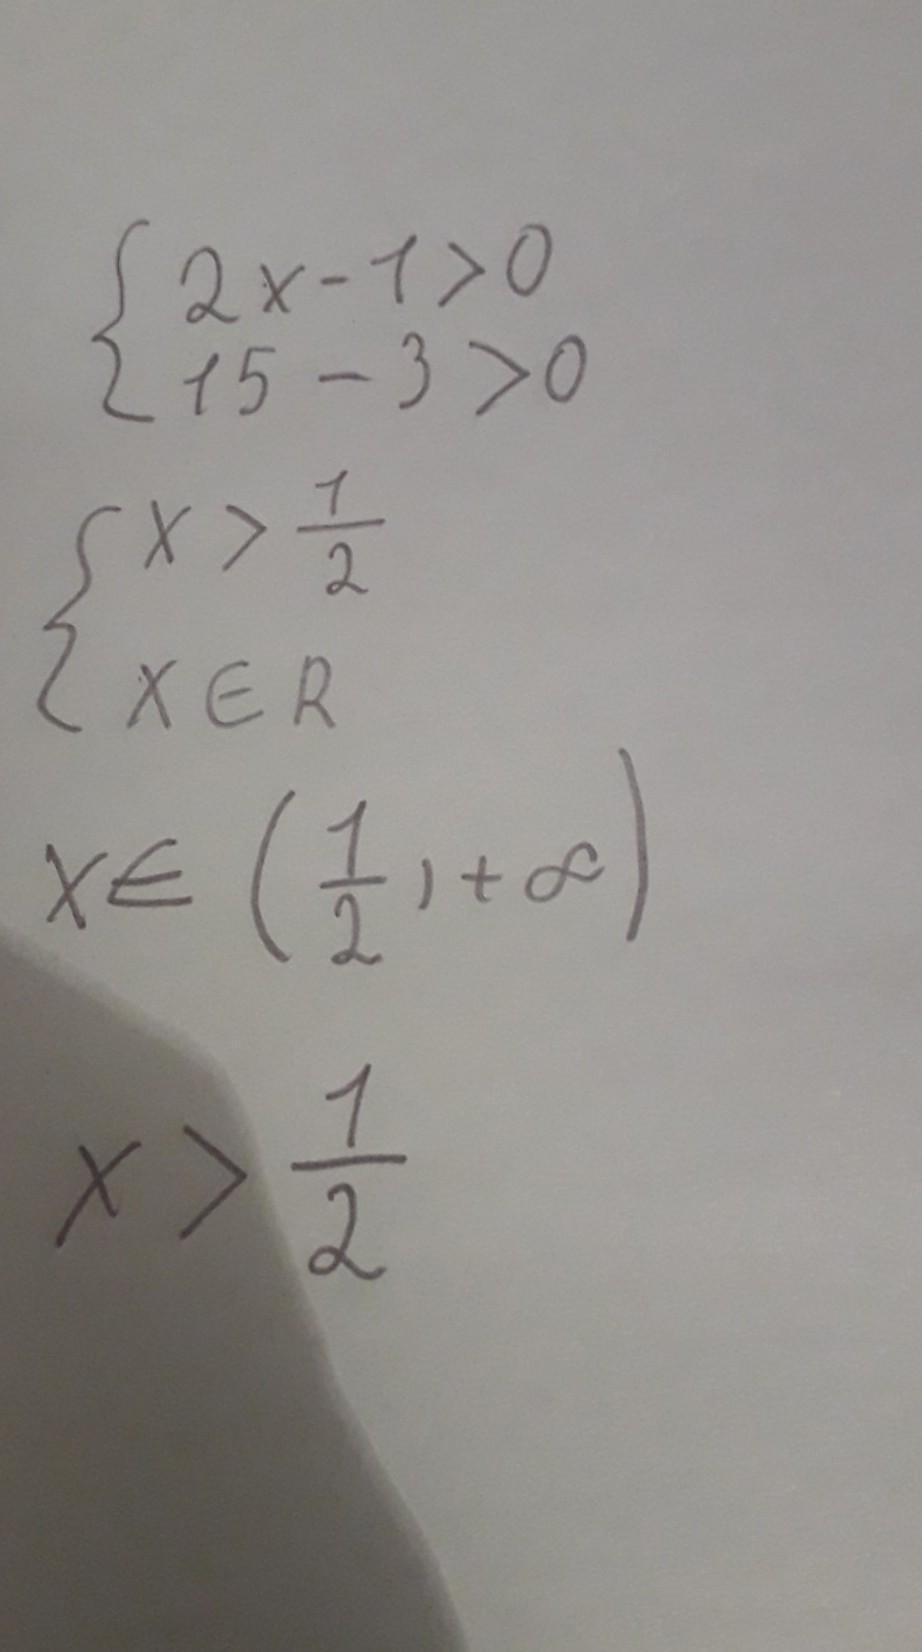 { 2x-1>0
15-3>0
{ x > 1/2
x ∈ R
x ∈ (1/2, +∞)
x > 1/2